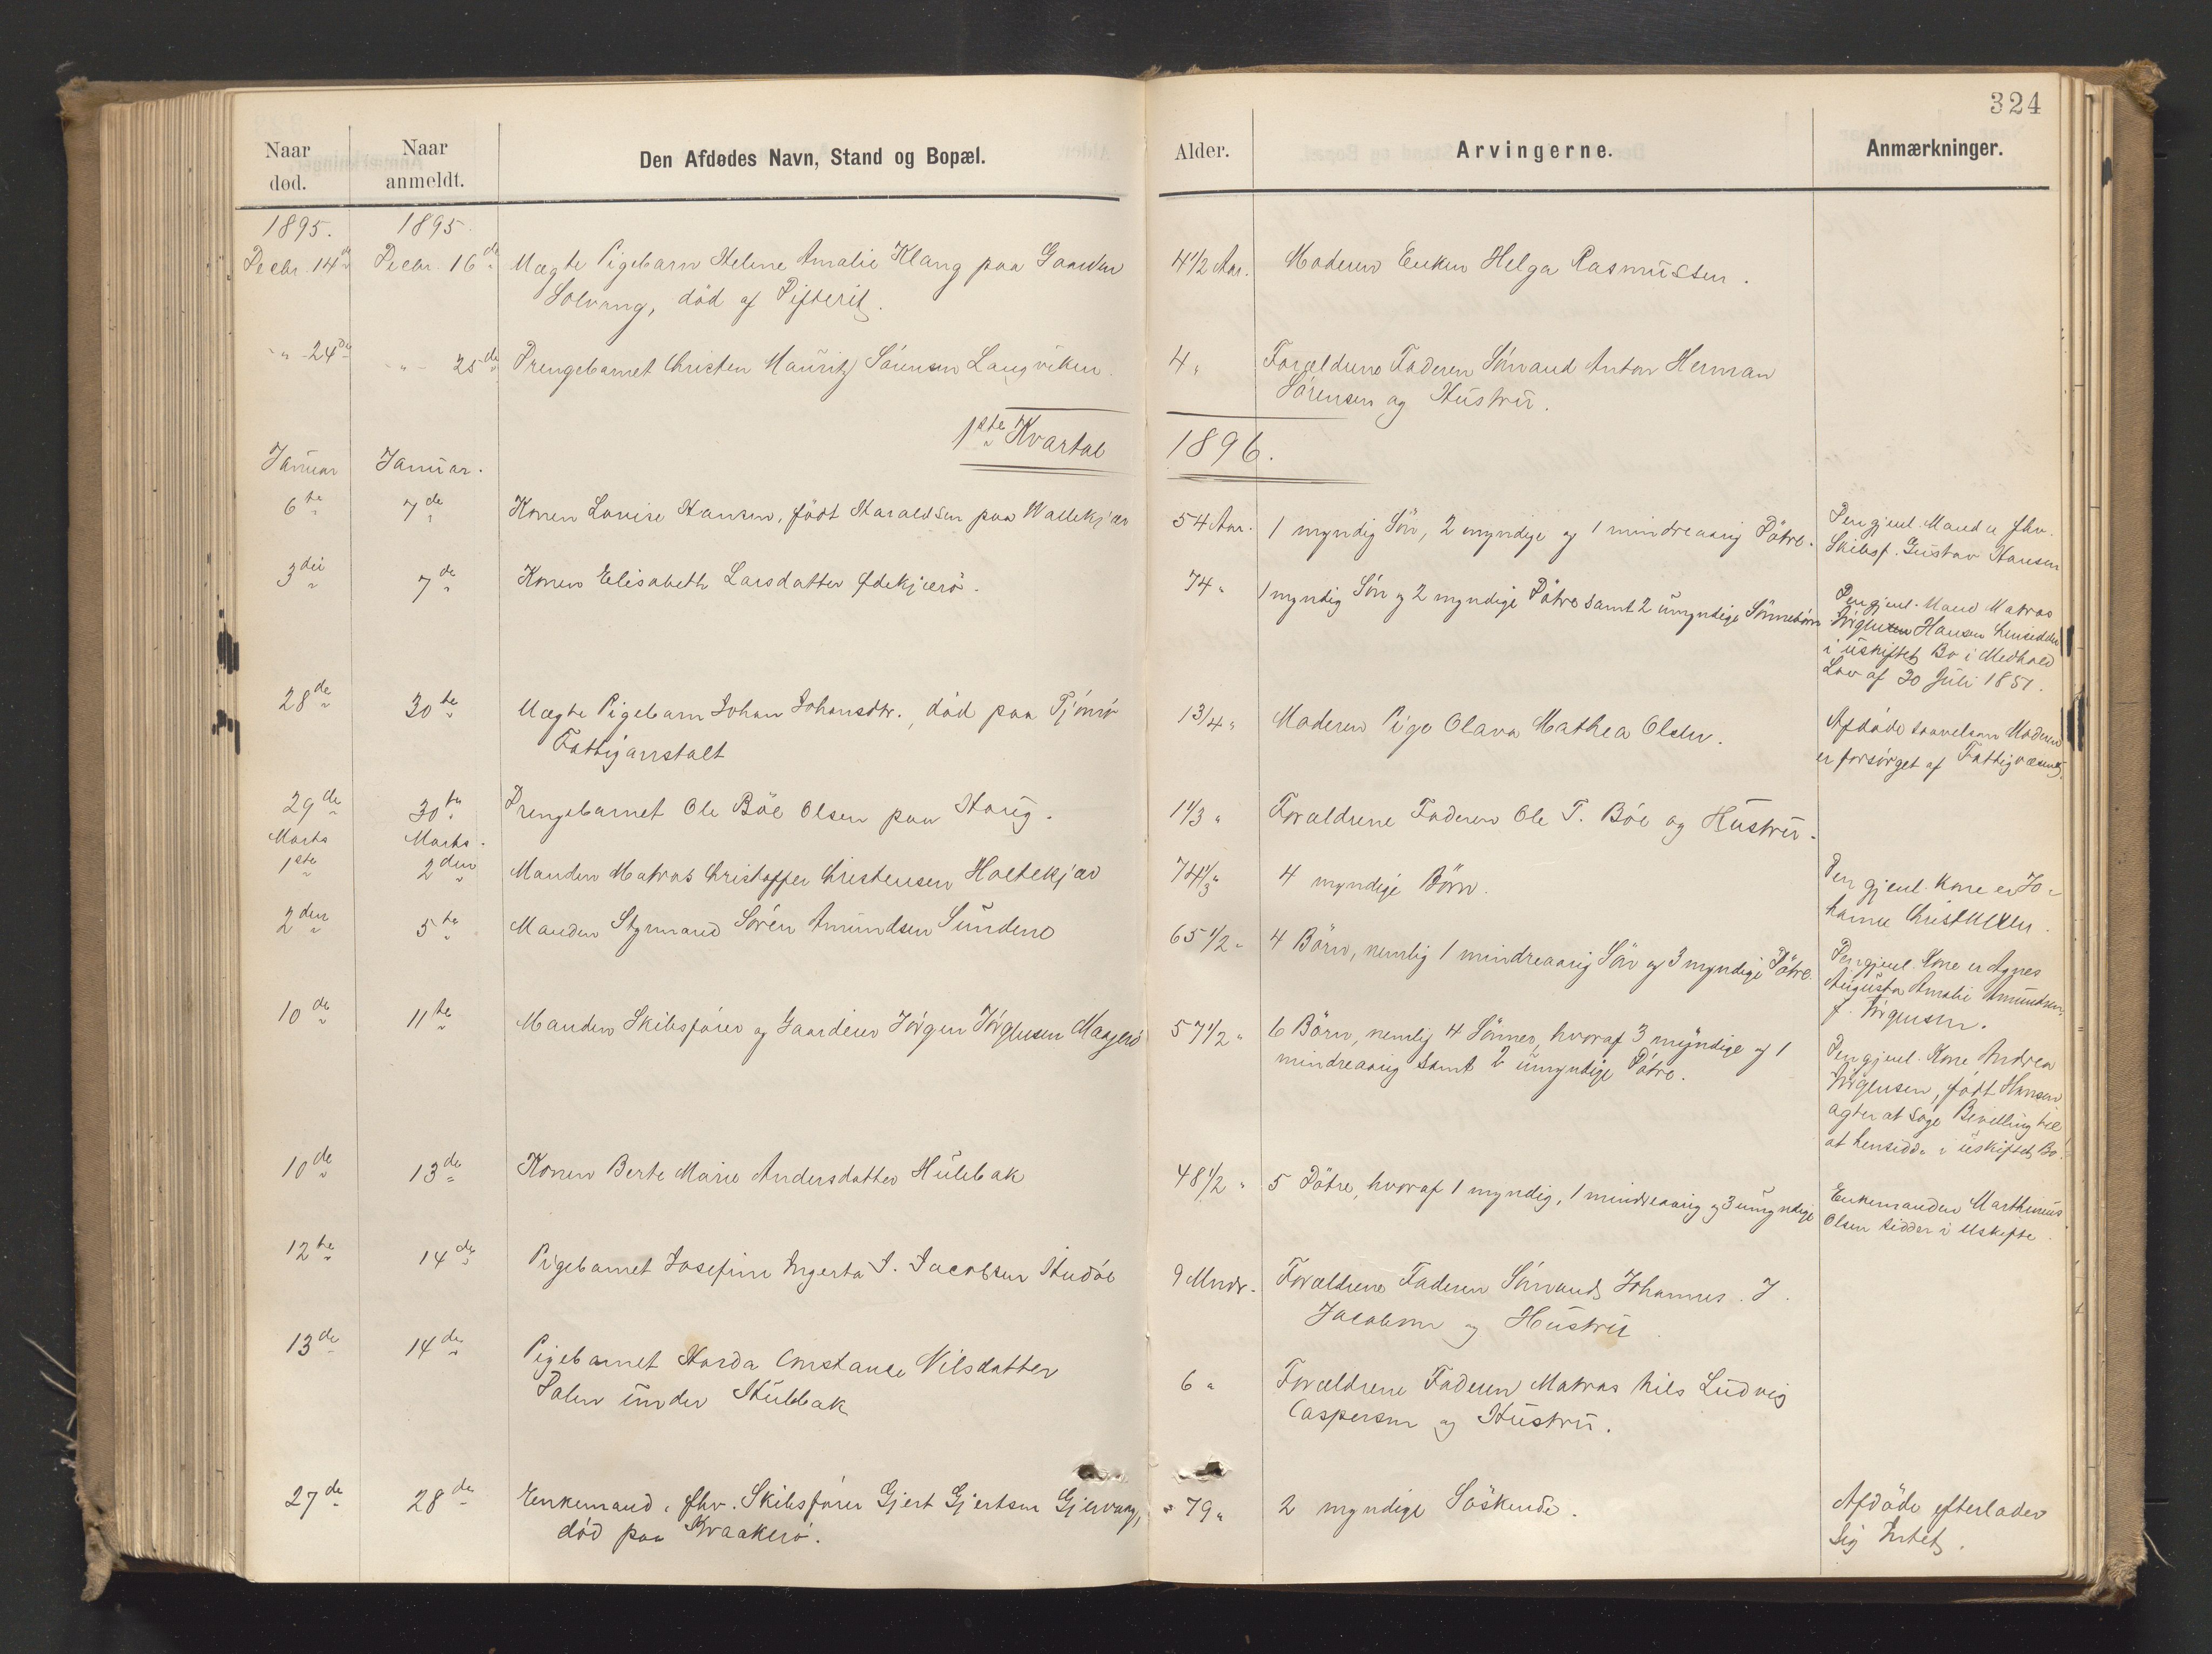 324
Naar død.
Naar anmeldt.
Den Afdødes Navn, Stand og Bopæl.
Alder.
Arvingerne.
Anmærkninger.
1895. 1895
Decbr. 14de Decbr. 16de Uægte Pigebarn Helene Amalie Klang paa Gaarden 4 1/2 Aar. Moderen Enken Helga Rasmussen.
Solvang, död af Difterit.
" 24de " 25de Drengebarnet Christen Mauritz Sörensen Langviken. 4 " Forældrene Faderen Sömand Anton Herman
Sörensen og Hustru.
1ste Kvartal 1896.
Januar Januar.
6te 7de Konen Lovise Hansen, födt Haraldsen paa Wallekjær 54 Aar. 1 myndig Sön, 2 myndige og 1 mindreaarig Dötre. Den gjenl. Mand er fhv.
Skibsf. Gustav Hansen
3die 7de Konen Elisabeth Larsdatter Ødekjærö. 74 " 1 myndig Sön og 2 myndige Dötre samt 2 umyndige Sönnebörn Den gjenl. Mand Matros
Jörgensen Hansen hensidder
i uskiftet Bo i Medhold
Lov af 30 Juli 1851.
28de 30te Uægte Pigebarn Johan Johansdtr., död paa Tjömö 1 3/4 " Moderen Pige Olava Mathea Olsen. Afdöde saavelsom Moderen
Fattiganstalt er forsörget af Fattigvæsenet.
29de 30te Drengebarnet Ole Böe Olsen paa Haug. 1 1/3 " Forældrene Faderen Ole T. Böe og Hustru.
Marts Marts.
1ste 2den Manden Matros Christoffer Christensen Holtekjær 74 1/3 " 4 myndige Börn. Den gjenl. Kone er Jo-
hanne Christensen.
2den 5te Manden Styrmand Sören Amundsen Sundene 65 1/2 " 4 Börn, nemlig 1 mindreaarig Sön og 3 myndige Dötre. Den gjenl. Kone er Agnes
Augusta Amalie Amundsen
f. Jörgensen.
10de 11te Manden Skibsförer og Gaardeier Jörgen Jörgensen Maagerö 57 1/2 " 6 Börn, nemlig 4 Sönner, hvoraf 3 myndige og 1
mindreaarig samt 2 umyndige Dötre.
Den gjenl. Kone Andrea
Jörgensen, födt Hansen
agter at söge Bevilling til
at hensidde i uskiftet Bo.
10de 13de Konen Berte Marie Andersdatter Hulebak 48 1/2 " 5 Dötre, hvoraf 1 myndig, 1 mindreaarig og 3 umyndige Enkemanden Marthinius
Olsen sidder i Uskifte.
12te 14de Pigebarnet Josefine Ingerta J. Jacobsen 9 Mndr. Forældrene Faderen Sömand Johannes J.
Jacobsen og Hustru
13de 14de Pigebarnet Harda Constance Nilsdatter
Dalen under Hulebak
6 " Forældrene Faderen Matros Nils Ludvig
Caspersen og Hustru.
27de 28de Enkemand, fhv. Skibsförer Gjert Gjertsen Gjervaag, 79 " 2 myndige Söskende. Afdöde efterlader
död paa Kraakerö. sig Intet.